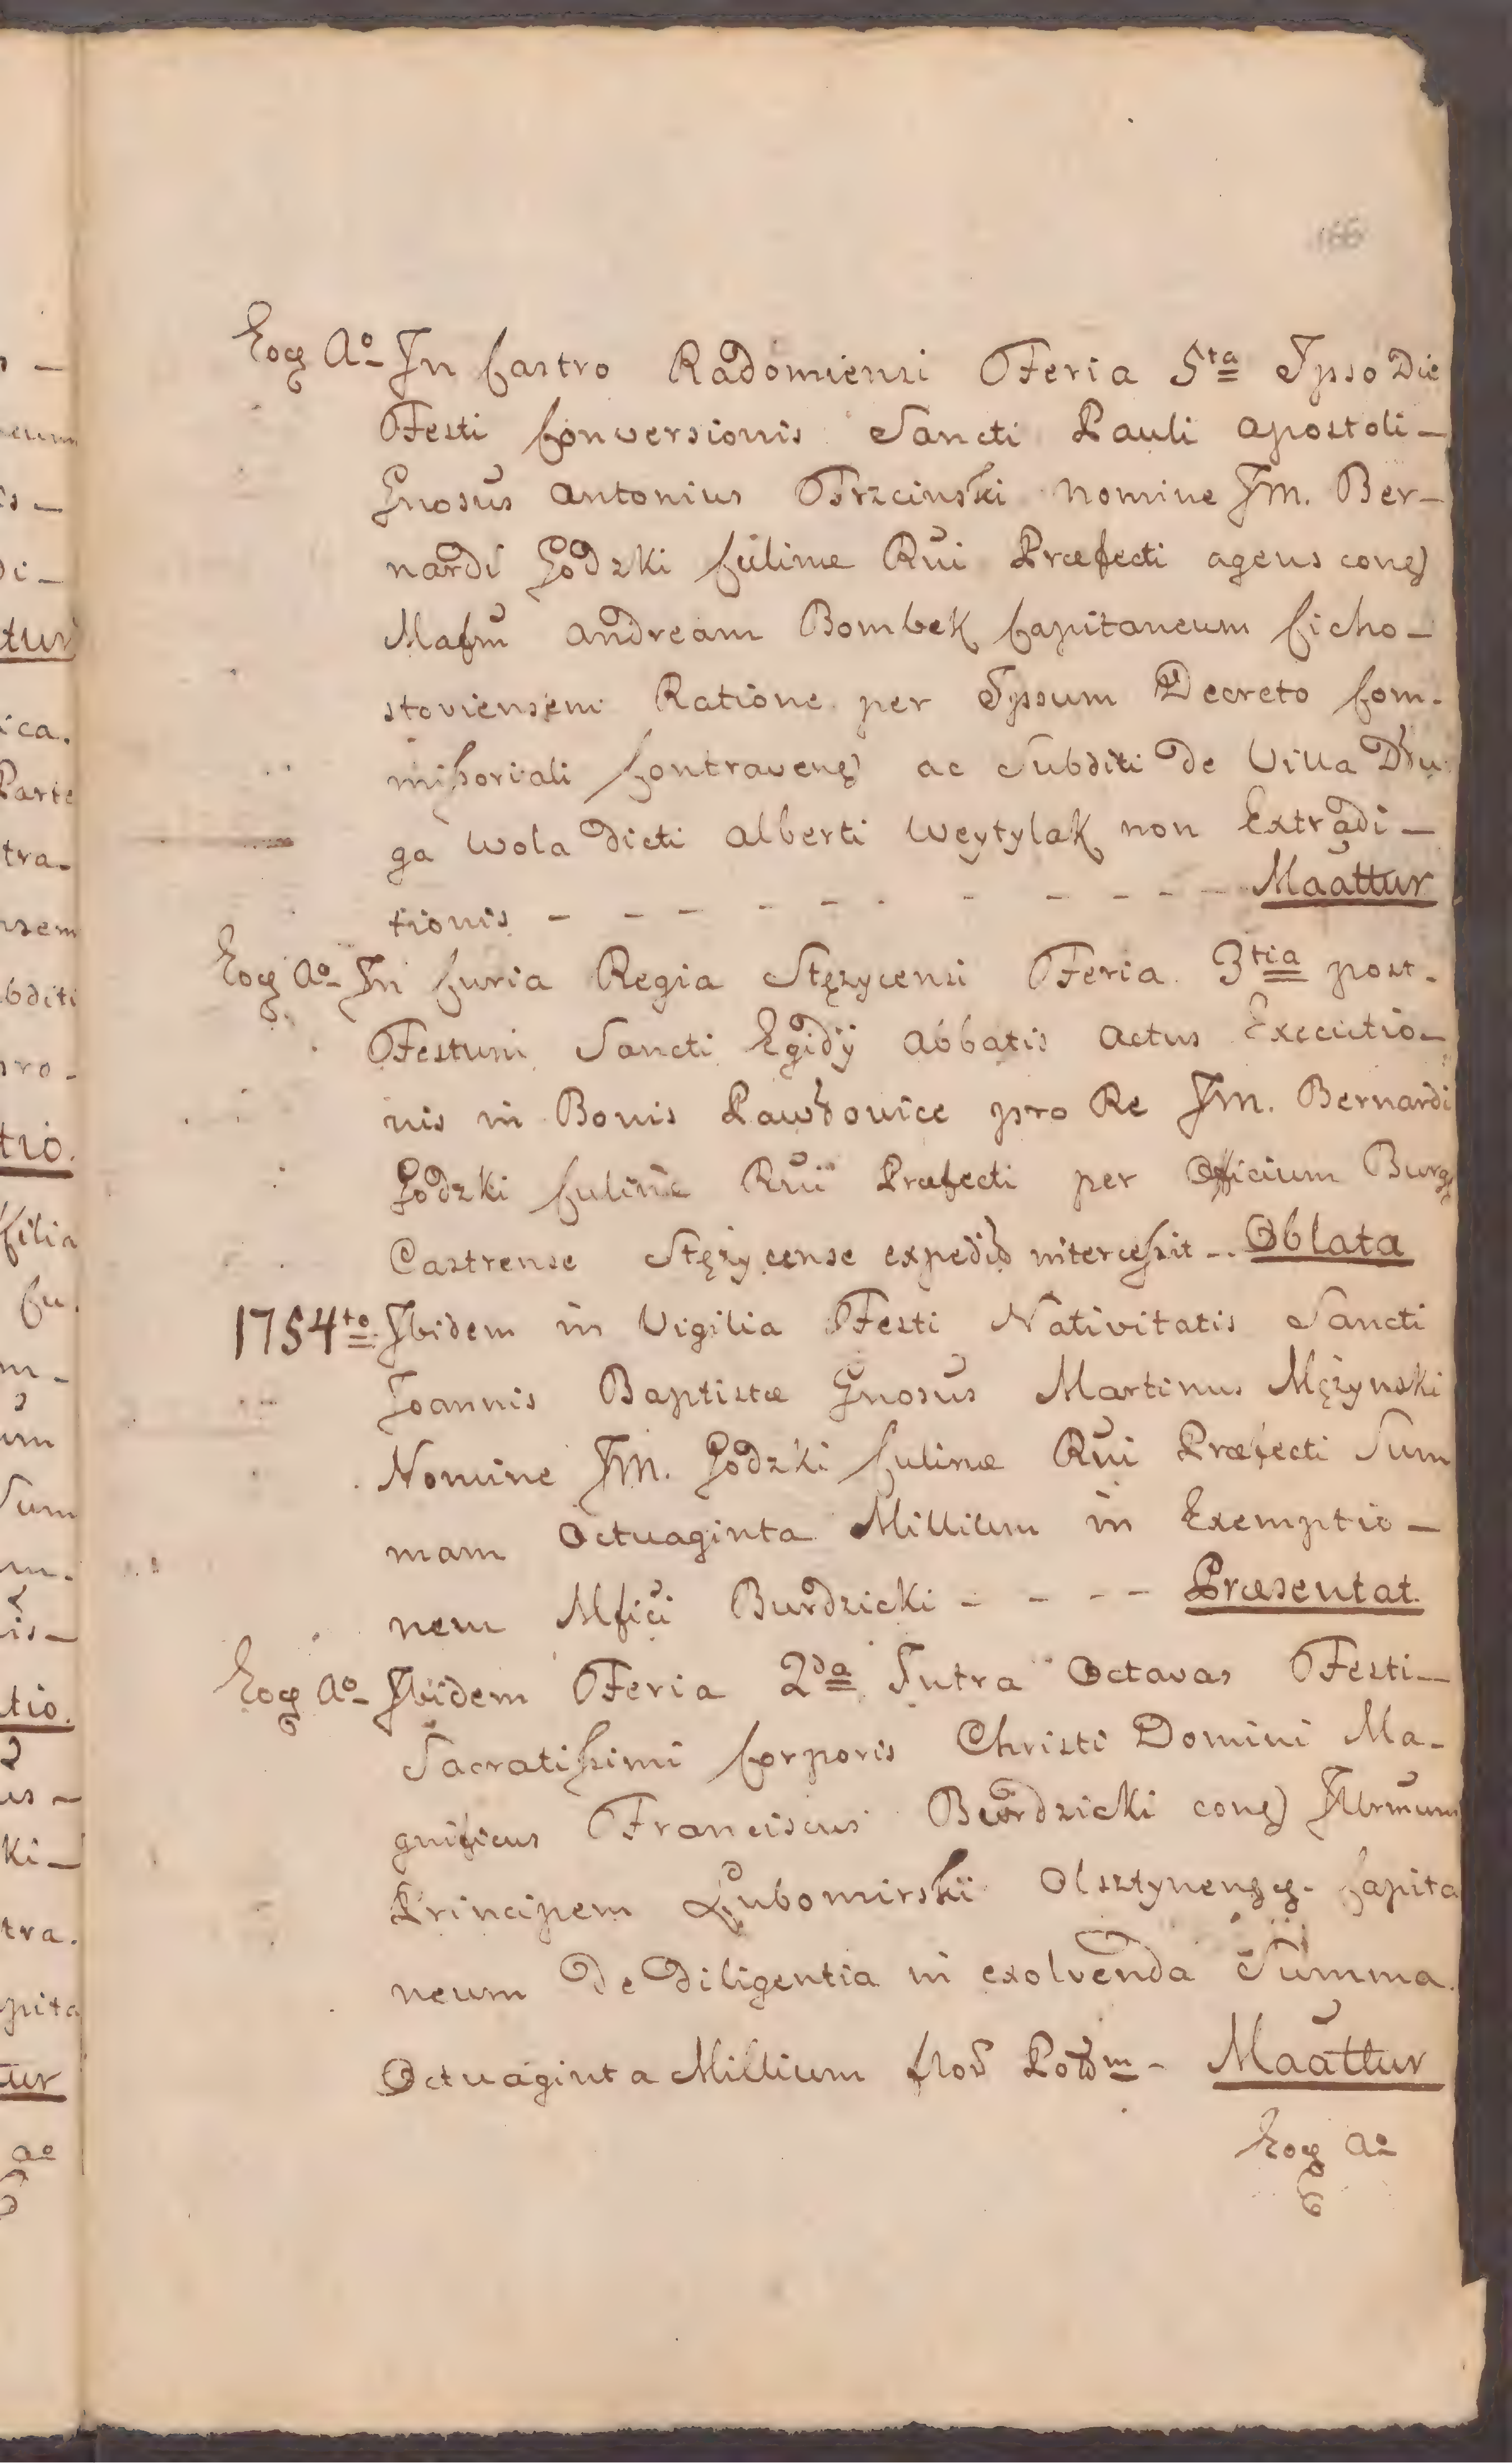 166
Eoq Ao In Castro Radomiensi Feria 5ta Ipso Die
Festi Conversionis Sancti Pauli Apostoli-
Gnosus Antonius Trzcinski Nomine Jm. Ber-
nardi Godzki Culinæ Rui Præfecti agens conq
Mafm Andream Bombek Capitaneum Cicho-
stoviensem Ratione per Ipsum Decreto Com-
missoriali Contraven ac Subditi de Villa Dłu
ga Wola dicti Alberti Weytylak non Extradi-
tionis - - - - - - - - - - Maattur
Eoq Ao In Curia Regia Stężycensi Feria 3tia post-
Festum Sancti Egidÿ Abbatis Actus Executio-
nis in Bonis Pawłowice pro Re Jm. Bernardi
Godzki Culinæ Rui Præfecti per Officium Burg
Castrense Stężycense expedit intercessit -. Oblata
1754to Ibidem in Vigilia Festi Nativitatis Sancti
Joannis Baptistæ Gnosus Martinus Mężynski
Nomine Jm. Godzki Culinæ Rui Præfecti Sum
mam Octuaginta Millium in Exemptio-
nem Mfici Burdzicki - - - - Præsentat.
Eoq Ao Ibidem Feria 2da Intra Octavas Festi-
Sacratissimi Corporis Christi Domini Ma-
gnificus Franciscus Burdzicki conq Illrmum
Principem Lubomirski Olsztynensq. Capita
neum de Diligentia in exolvenda Summa
Octuaginta Millium flor Polm - Maattur
Eoq Ao
tur
ica.
Parte
tra-
nsem
bditi
pro-
tio.
filia
Cu.
Sum
is-
tio.
ki-
tra.
pita
tur
ao